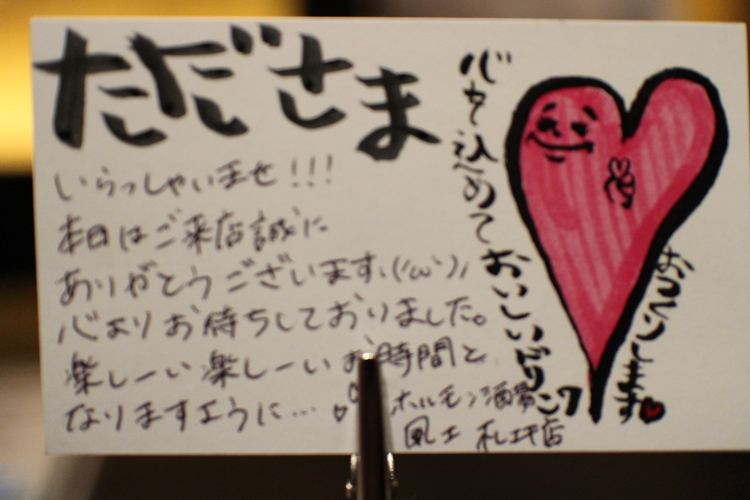 ただださま
いらっしゃいませ!!!
本日はご来店誠に
ありがとうございます、(´ω`)ノ
心よりお待ちしておりました。
楽しーい楽しーいお時間と
なりますように…
ホルモン酒場
風土 札駅店
心を込めて
おいしいドリンク
おつくりします